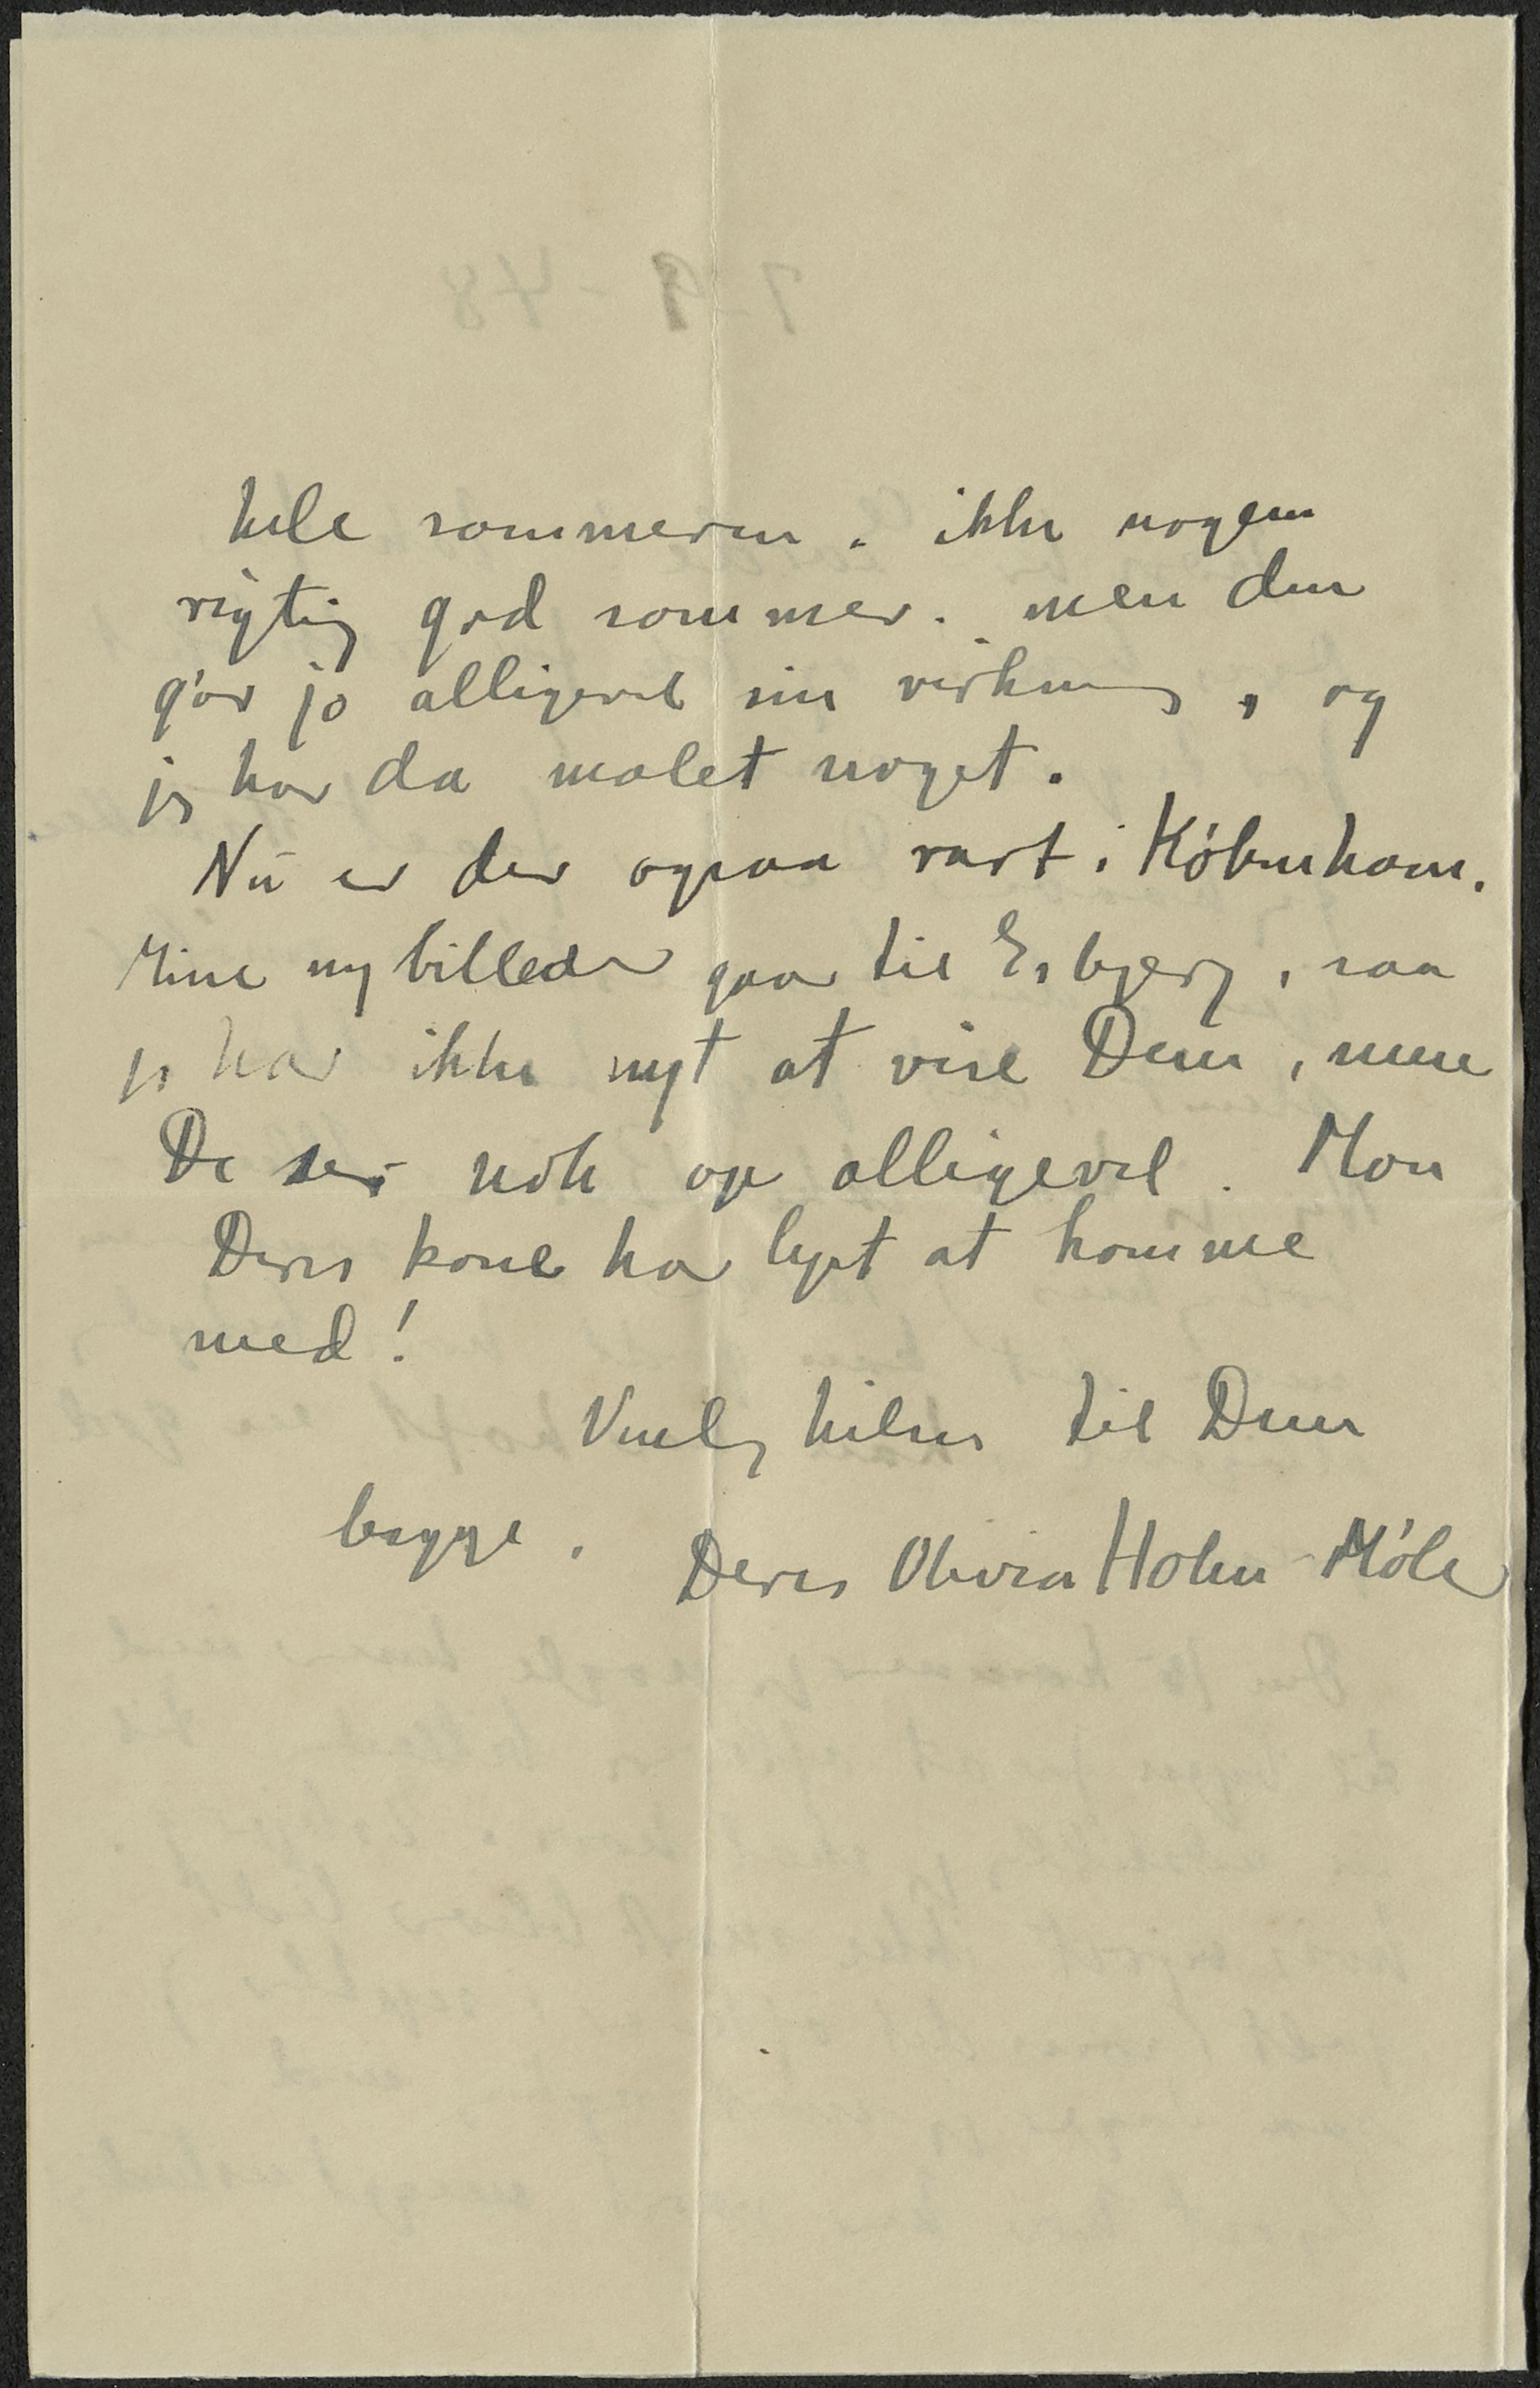 hele sommeren. ikke nogen
rigtig god sommer. men den
gør jo alligevel sin virkning, og
jeg har da malet noget.
Nu er der ogsaa rart i København.
Mine ny billeder gaar til Esbjerg, saa
jeg har ikke nyt at vise Dem, men
De ser nok op alligevel. Mon
Deres kone har lyst at komme
med!
Venlig hilsen til Dem
begge.
Deres Olivia Holm-Møller